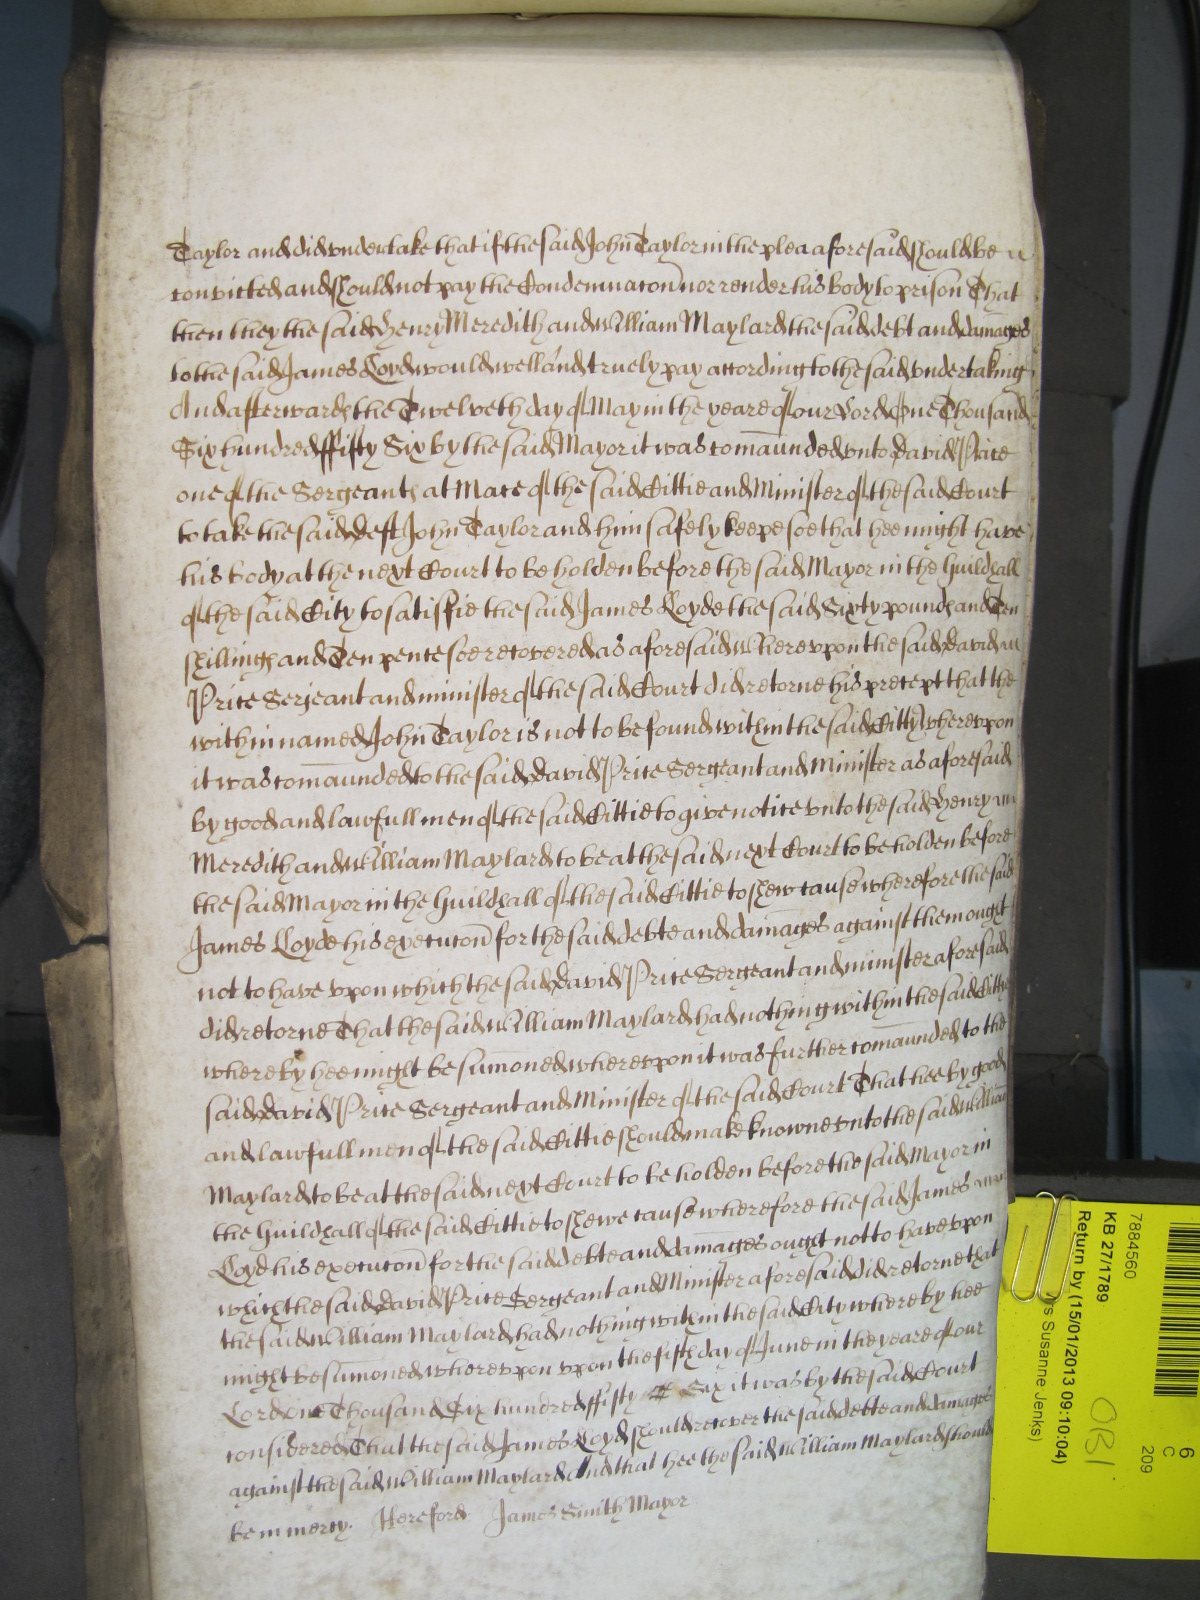 Taylor and did vndertake that if the said John Taylor in the plea aforesaid should be
convicted and should not pay the Condemnacon nor render his body to prison That
then they the said Henry Meredith and William Maylard the said debt and damages
to the said James Loyd would well and truely pay according to the said vndertaking
And afterwards the Twelveth day of May in the yeare of our Lord One Thousand
Six hundred ffifty Six by the said Mayor it was comaunded vnto David Price
one of the Sergeants at Mace of the said Cittie and Minister of the said Court
to take the said deft John Taylor and him safely keepe soe that hee might have
his body at the next Court to be holden before the said Mayor in the Guildhall
of the said City to satisfie the said James Loyde the said Sixty pounds and Ten
shillings and Ten pence soe recovered as aforesaid Wherevpon the said David
Price Serjeant and minister of the said Court did retorne his precept that the
within named John Taylor is not to be found within the said Citty wherevpon
it was comaunded to the said David Price Sergeant and Minister as aforesaid
by good and lawfull men of the said Cittie to give notice vnto the said Henry
Meredith and William Maylard to be at the said next Court to be holden before
the said Mayor in the Guildhall of the said Cittie to shew cause wherefore the said
James Loyde his execucon for the said debte and damages against them ought
not to have vpon which the said David Price Sergeant and minister aforesaid
did retorne That the said William Maylard had nothing within the said Cittie
whereby hee might be sumoned wherevpon it was further comaunded to the
said David Price Sergeant and Minister of the said Court That hee by good
and lawfull men of the said Cittie should make knowne vnto the said William
Maylard to be at the said next Court to be holden before the said Mayor in
the Guildhall of the said Cittie to shewe cause wherefore the said James
Loyd his execucon for the said debte and damages ought not to have vpon
which the said David Price Sergeant and Minister aforesaid did retorne that
the said William Maylard had nothing within the said City whereby hee
might be sumoned wherevpon vpon the fifth day of June in the yeare of our
Lord one Thousand Six hundred ffifty Six it was by the said Court
considered That the said James Loyd should recover the said debte and damages
against the said William Maylard And that hee the said William Maylard should
be in mercy. Hereford James Smith Mayor
7884560
KB 27/1789
Return by (15/01/2013 09:10:04)
s Susanne Jenks)
OBI
6
C
209